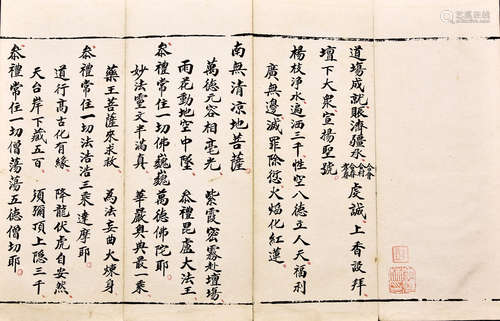 道場成就賑濟孤永合合合會府泰虔誠上香設拜
壇下大衆宣揚聖號
楊枝淨水遍洒三千性空八德立人天福利
廣無邊滅罪除愆火焰化紅蓮
南無清凉地菩薩
萬德元容相毫光 紫霞密霧赴壇場
雨花動地空中墜 叅禮毘盧大法王
叅禮常住一切佛巍巍萬德佛陀耶
妙法靈文半滿真 華嚴奥典最一乘
藥王菩薩來求救 為法妄曲大煉身
叅禮常住一切法浩浩三乘達摩耶
道行高古化有緣 降龍伏虎自安然
天台岸下藏五百 須彌頂上隱三千
叅禮常住一切僧蕩蕩五德僧切耶